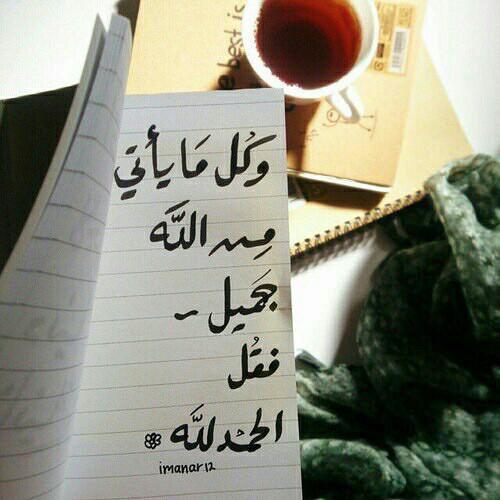 e best is
وَكُل مَا يأتي
مِن اللَّه
جَميل ~
فقُل
الحَمدللَّه
imanar12